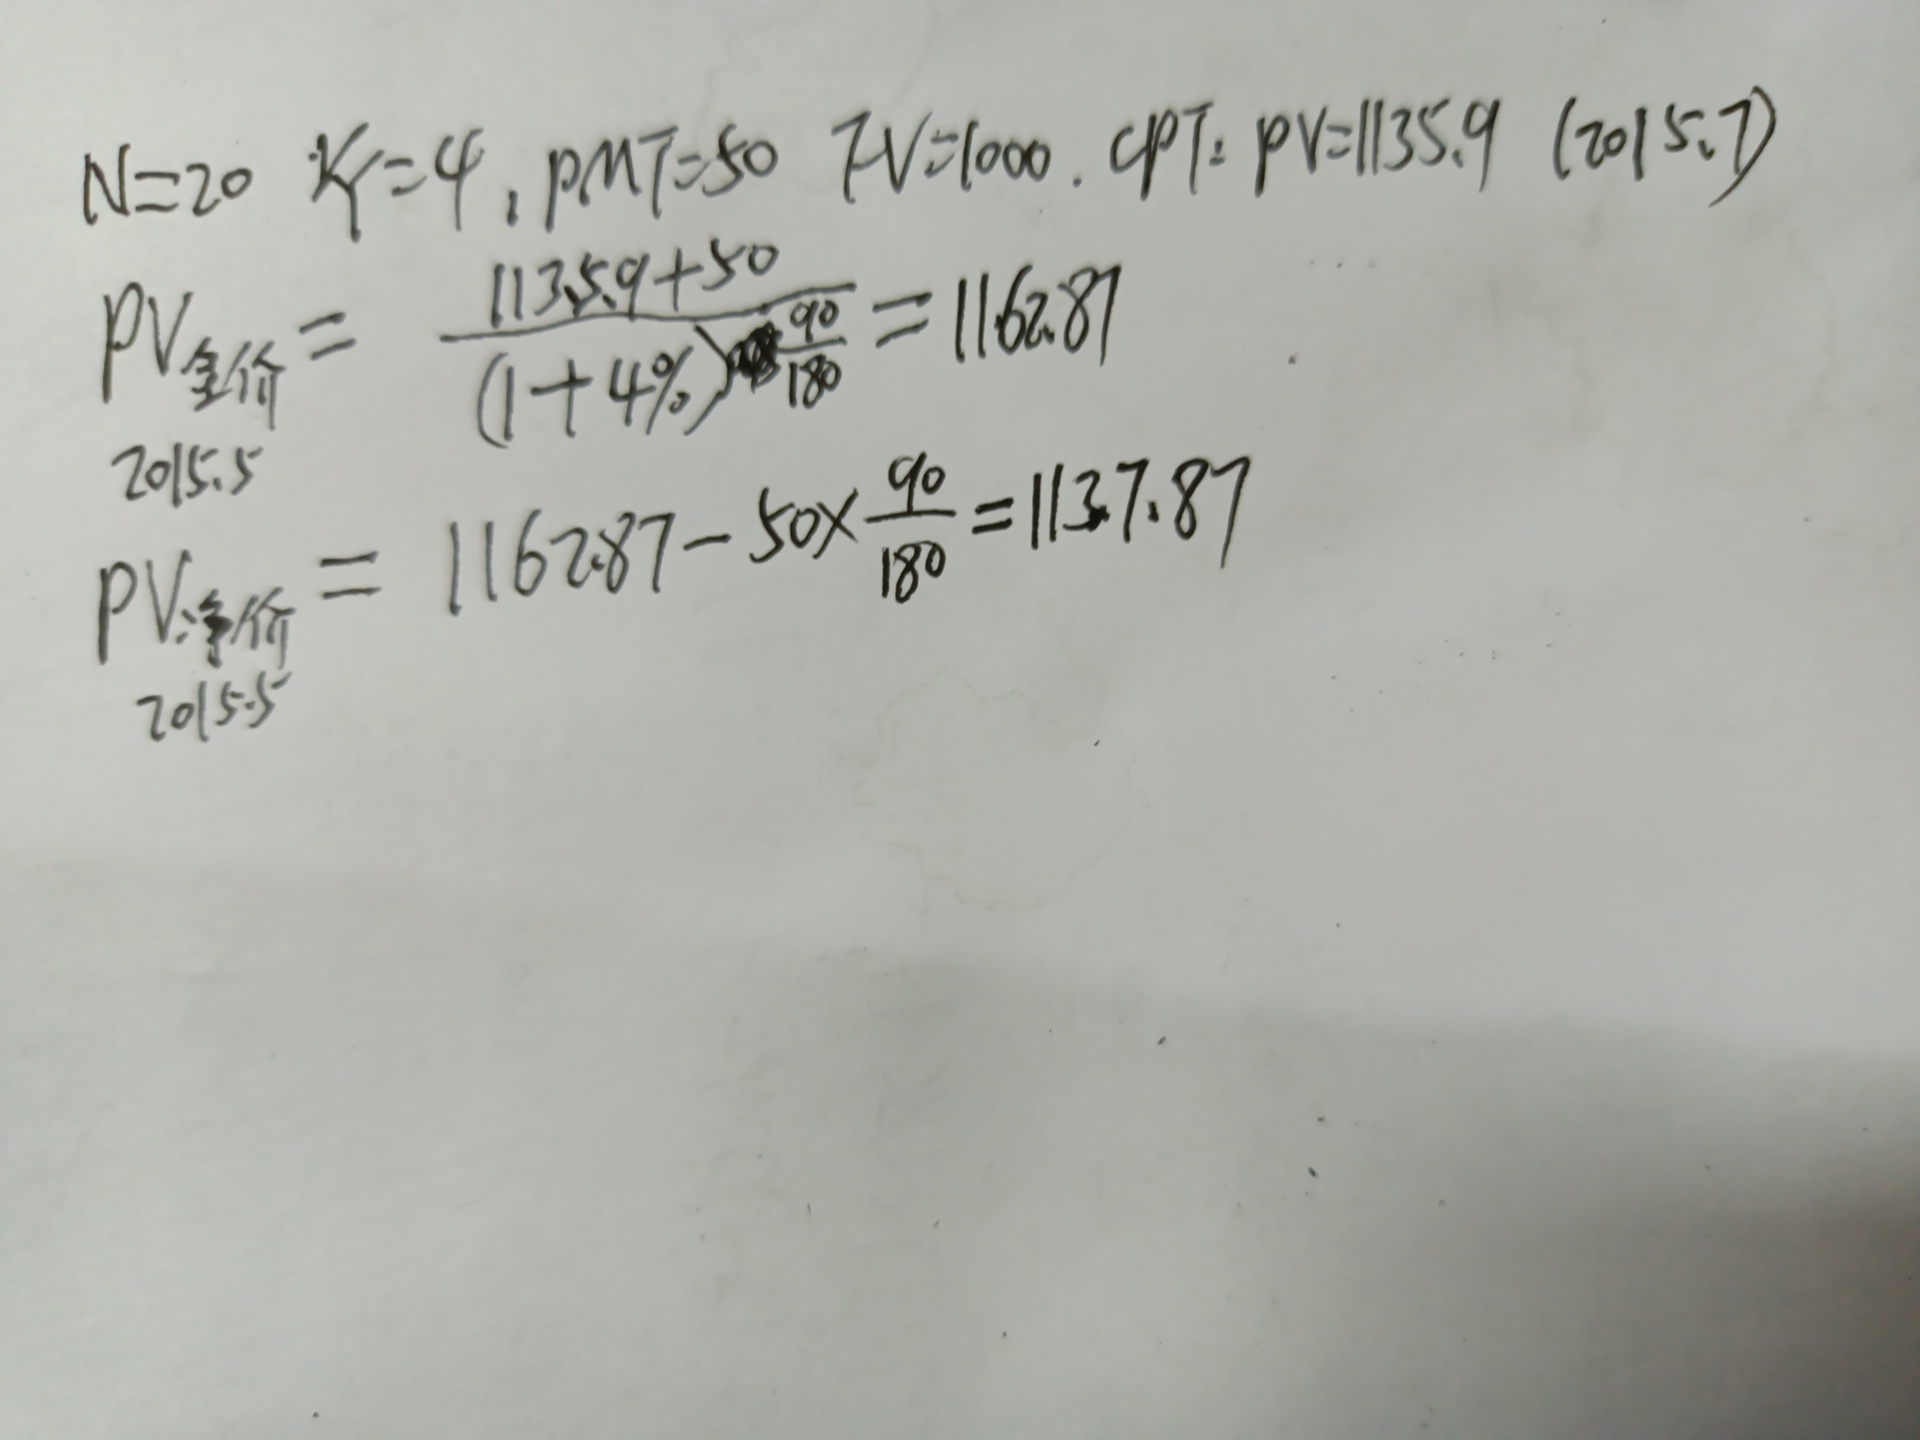 N=20 I/Y=4, PMT=50 FV=1000. CPT: PV=1135.9 (2015.7)
PV全价 2015.5 = (1135.9+50)/(1+4%)^(90/180) = 1162.87
PV净价 2015.5 = 1162.87-50×90/180=1137.87